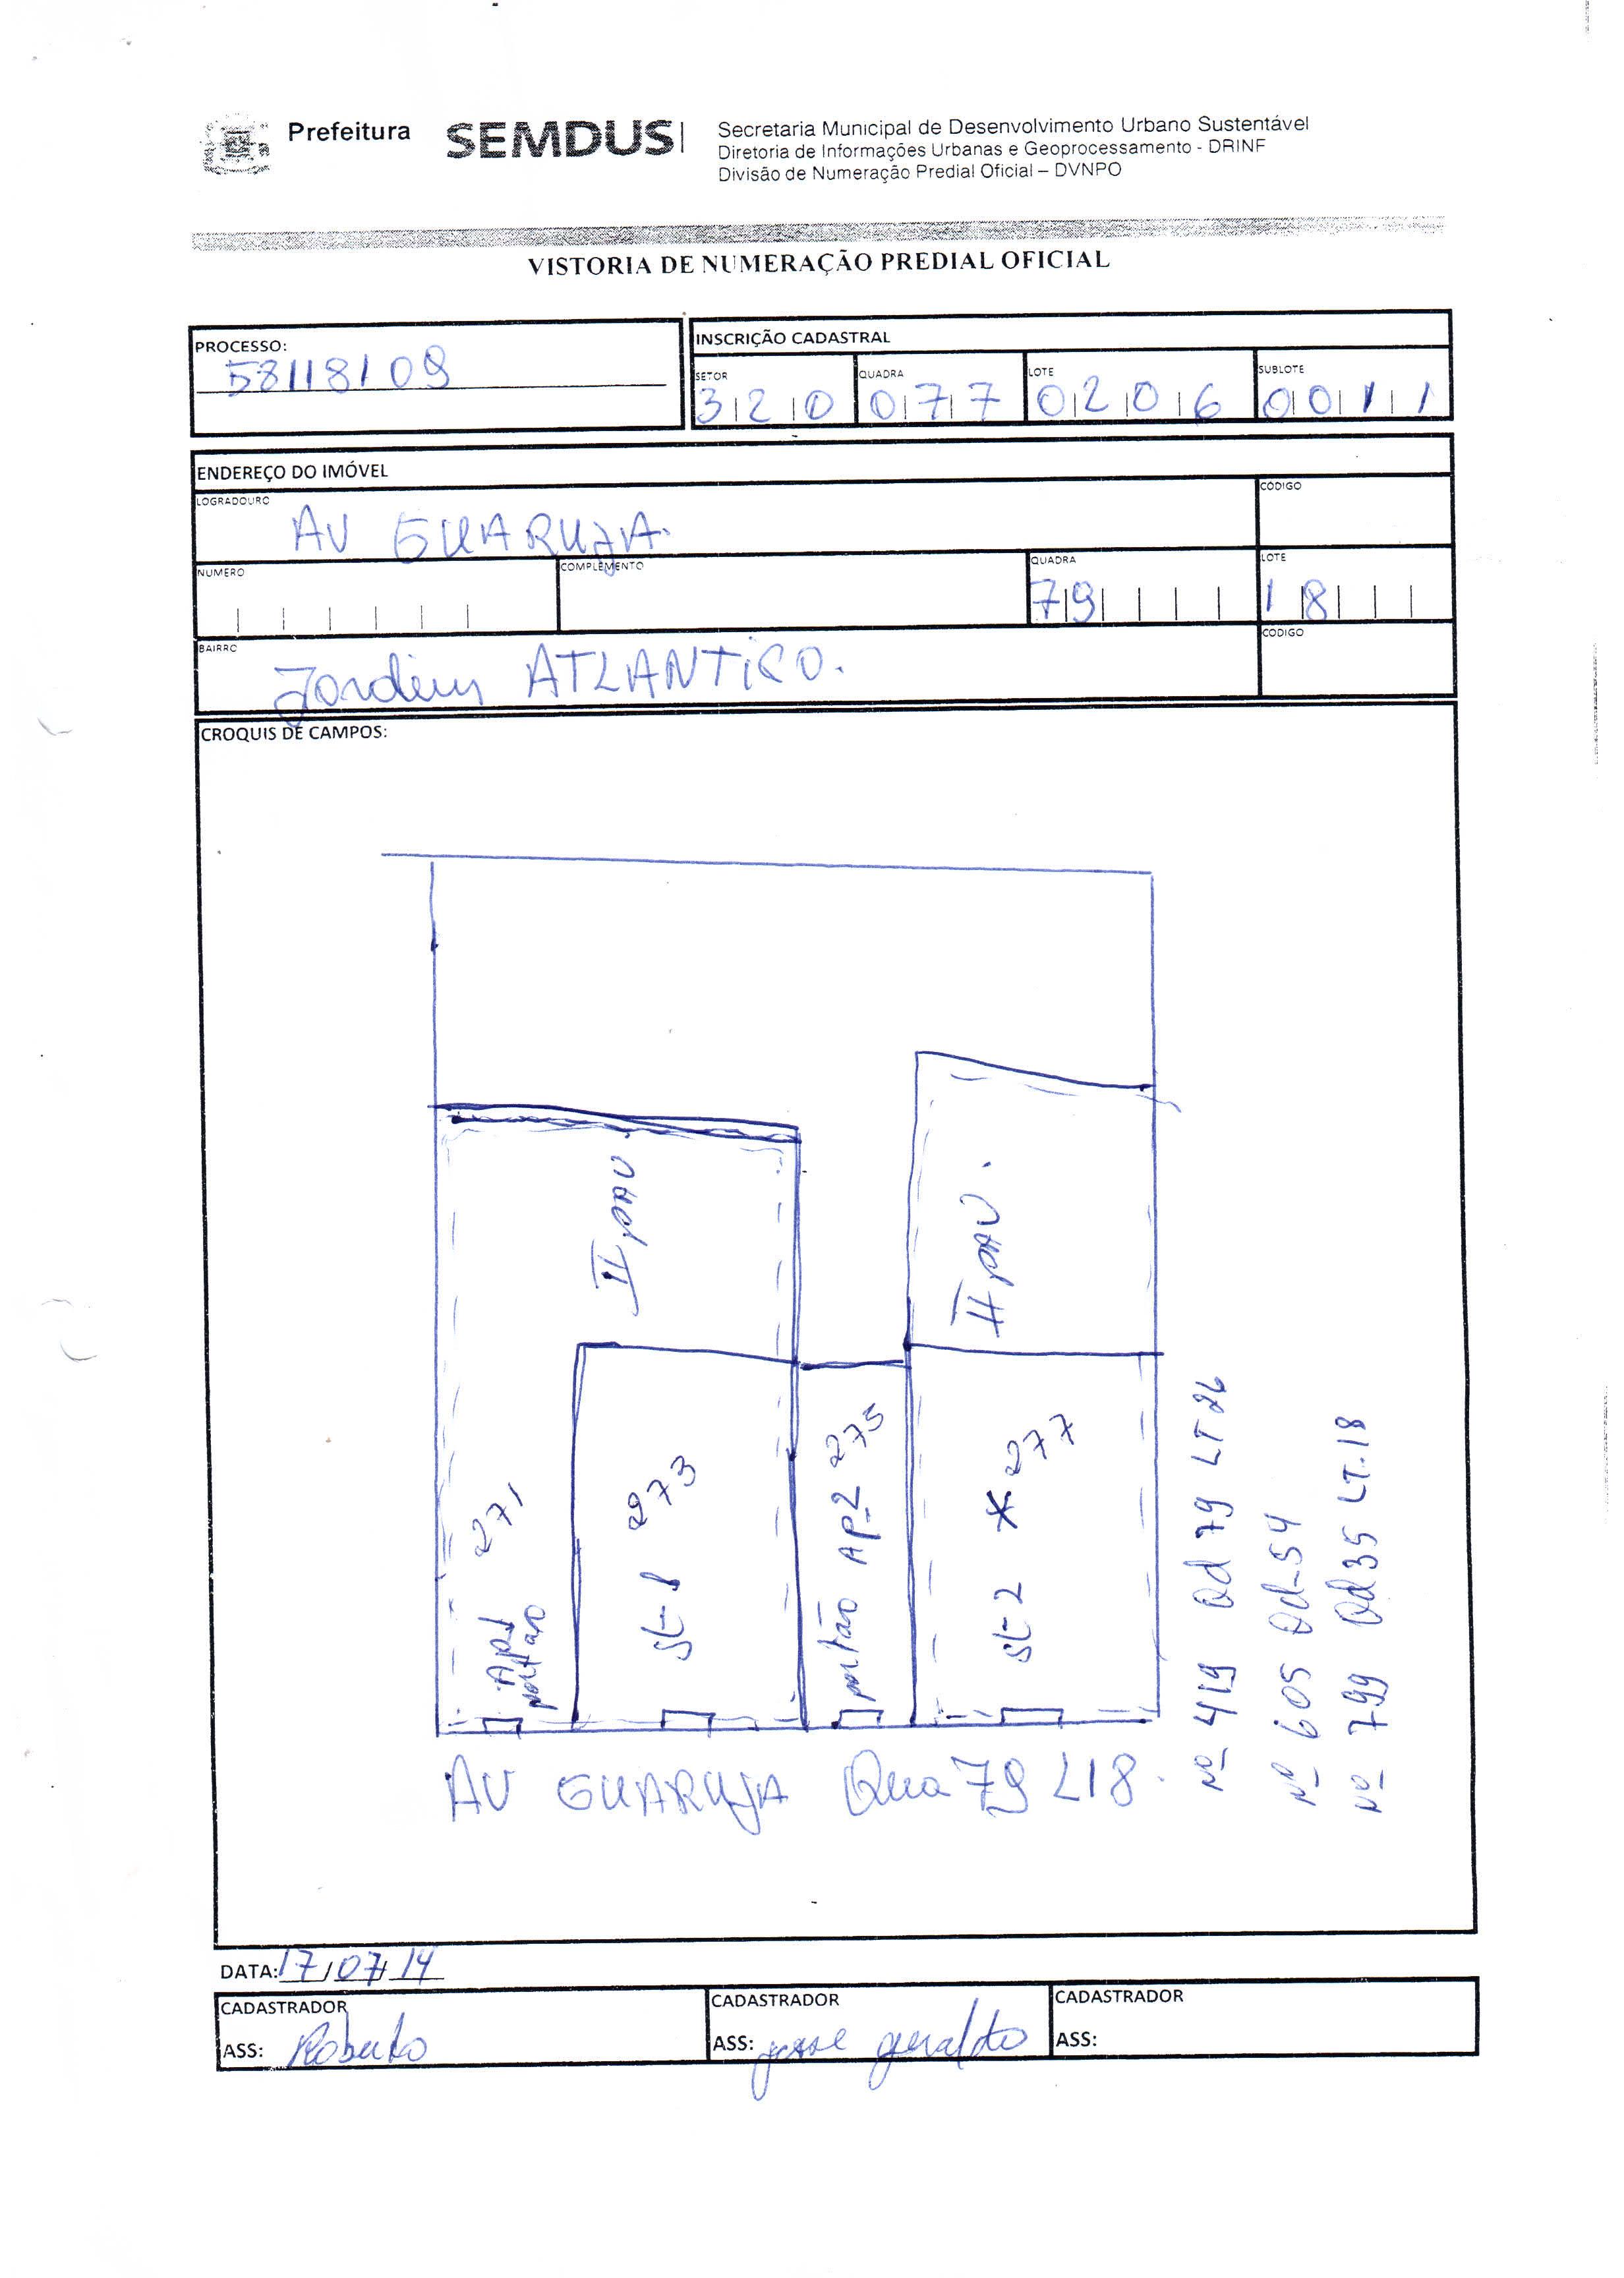 Prefeitura SEMDUS
Secretaria Municipal de Desenvolvimento Urbano Sustentável
Diretoria de Informações Urbanas e Geoprocessamento - DRINF
Divisão de Numeração Predial Oficial – DVNPO
VISTORIA DE NUMERAÇÃO PREDIAL OFICIAL
PROCESSO:
58118109
INSCRIÇÃO CADASTRAL
SETOR QUADRA LOTE SUBLOTE
320 077 0206 0011
ENDEREÇO DO IMÓVEL
LOGRADOURO CÓDIGO
AV GUARUJA.
NUMERO COMPLEMENTO QUADRA LOTE
79 18
BAIRRO CÓDIGO
Jardim ATLANTICO.
CROQUIS DE CAMPOS:
II PAV.
II PAV.
Ap1 portão 271
SL-1 273
portão AP-2 275
SL-2 * 277
Nº 419 Qd 79 LT 26
Nº 605 Qd-54
Nº 799 Qd 35 LT.18
AV GUARUJA Qua 79 L18.
DATA: 17/07/14
CADASTRADOR CADASTRADOR CADASTRADOR
ASS: Roberto ASS: jose geraldo ASS: